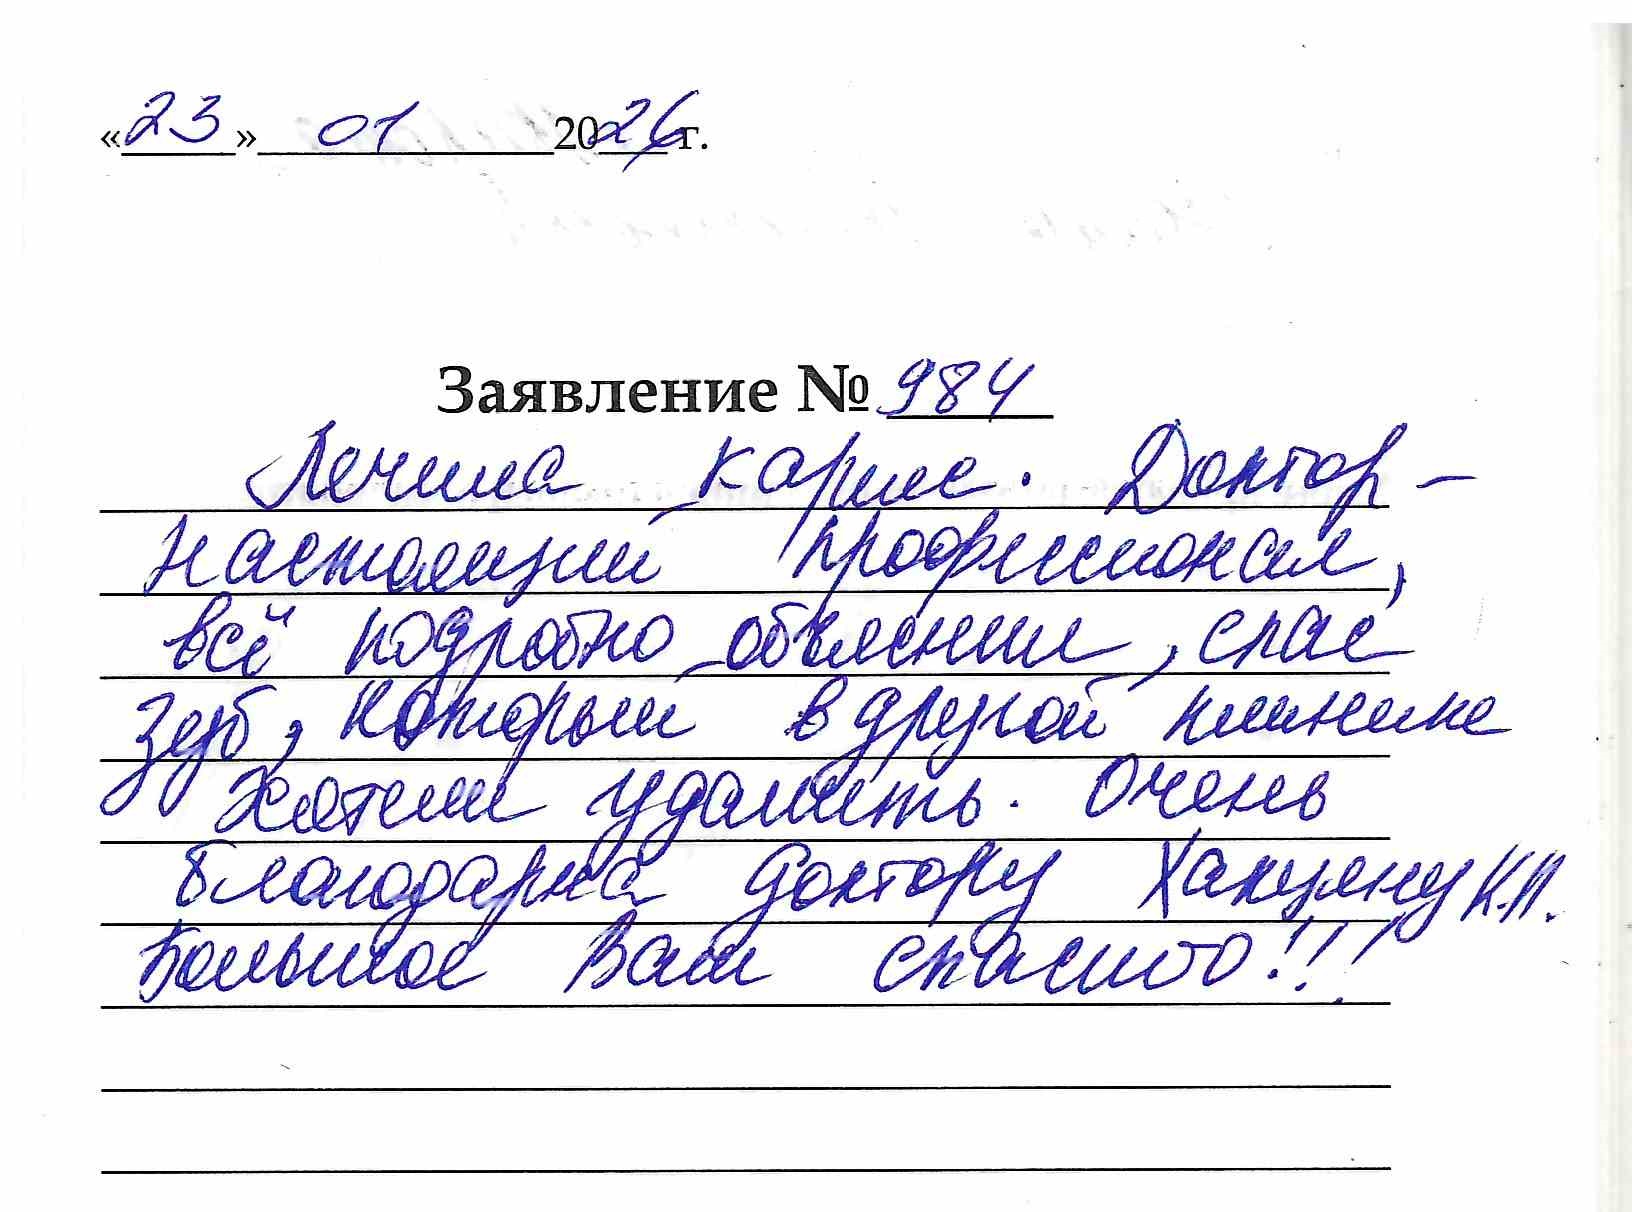 «23» 01 2026 г.
Заявление № 984
Лечила кариес. Доктор –
настоящий профессионал,
всё подробно объяснили, спас
зуб, который в другой клинике
хотели удалить. Очень
благодарна доктору Хакуляну К.П.
Большое Вам спасибо!!!